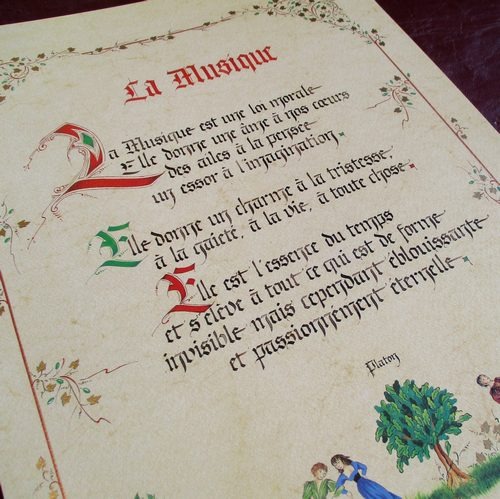 La Musique
La Musique est une loi morale
Elle donne une âme à nos cœurs
des ailes à la pensée
un essor à l'imagination.
Elle donne un charme à la tristesse,
à la gaieté, à la vie, à toute chose.
Elle est l'essence du temps
et s'élève à tout ce qui est de forme
invisible mais cependant éblouissante
et passionnément éternelle.
Platon